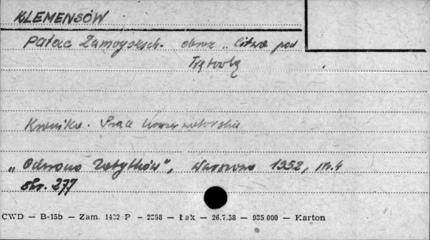 KLEMENSÓW
Pałac Zamoyskich. obraz "Bitwa pod
Trębowlą
Kronika. Prace konserwatorskie
"Ochrona Zabytków", Warszawa 1952, nr. 4
str. 277
CWD — B-15b — Zam. 1402 P — 2358 — Łak — 26.7.38 — 935.000 — Karton